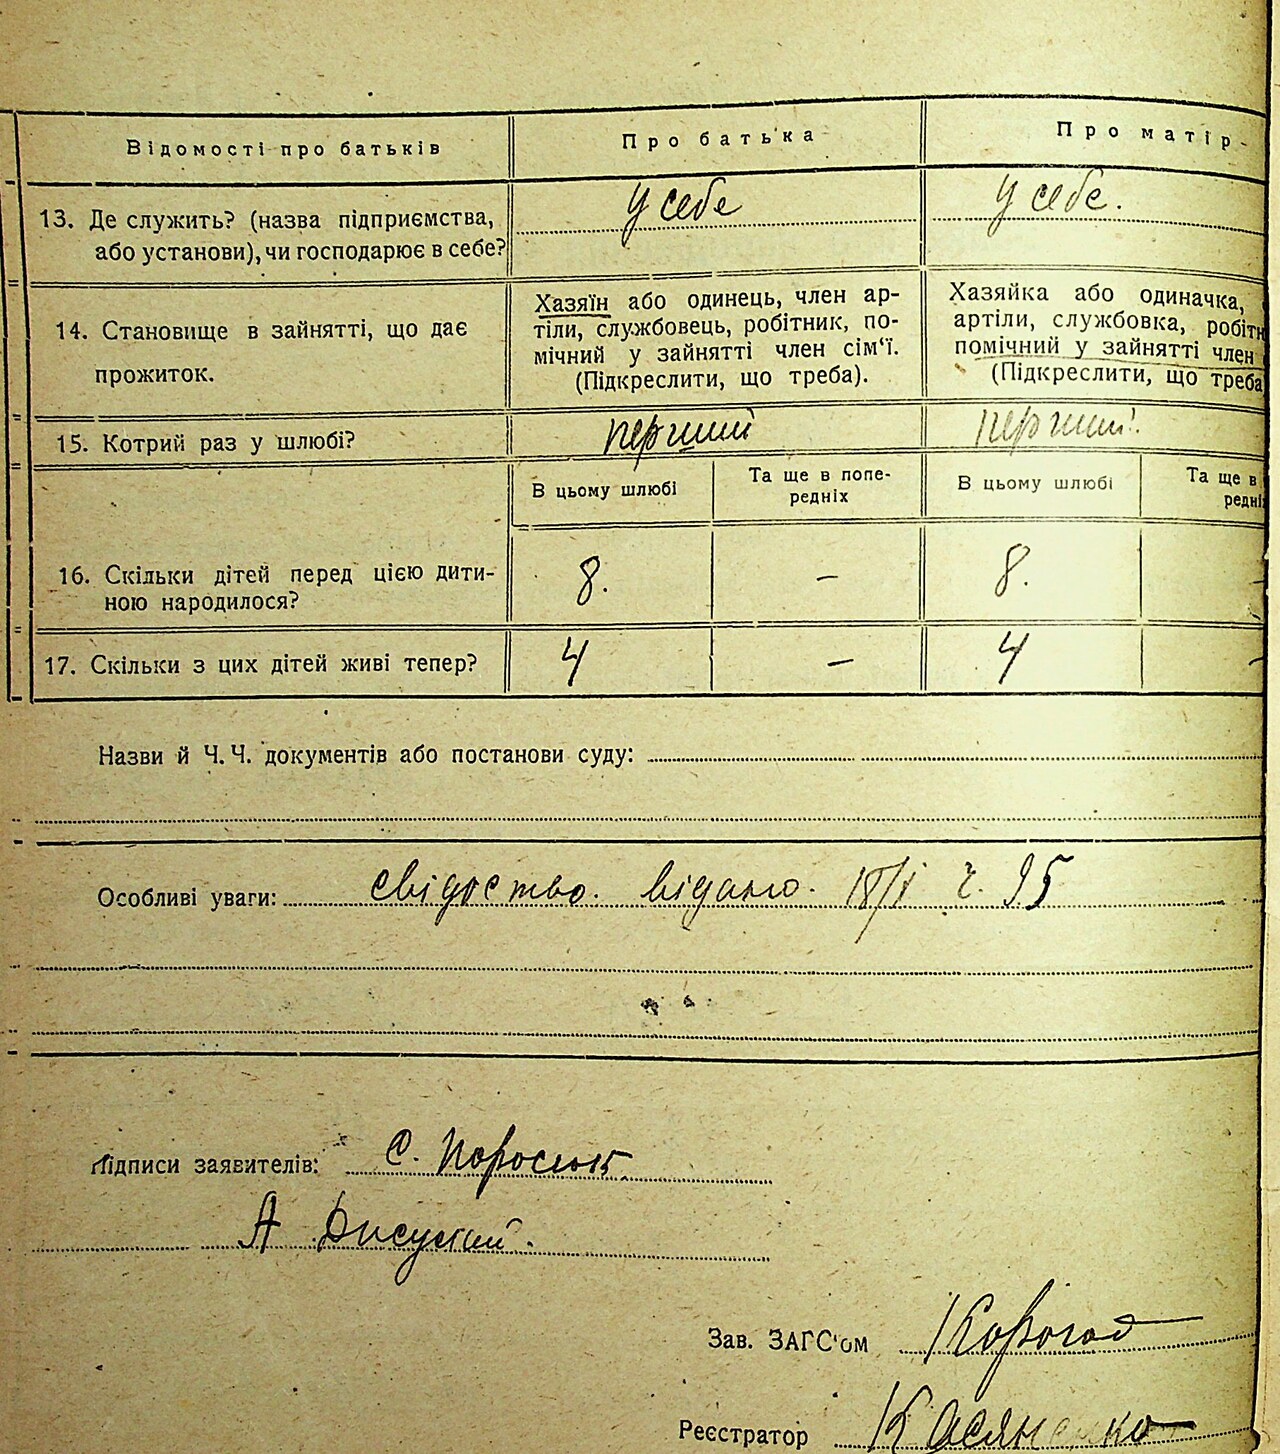 Відомості про батьків Про батька Про матір
13. Де служить? (назва підприємства, або установи), чи господарює в себе? у себе у себе.
14. Становище в зайнятті, що дає прожиток.
Хазяїн або одинець, член ар-
тіли, службовець, робітник, по-
мічний у зайнятті член сім'ї.
(Підкреслити, що треба).
Хазяйка або одиначка,
артіли, службовка, робітн
помічний у зайнятті член
(Підкреслити, що треба
15. Котрий раз у шлюбі? перший перший.
В цьому шлюбі Та ще в попе-
редніх
В цьому шлюбі Та ще в
редніх
16. Скільки дітей перед цією дити-
ною народилося? 8. – 8. -
17. Скільки з цих дітей живі тепер? 4 – 4 -
Назви й Ч. Ч. документів або постанови суду:
Особливі уваги: свідоство. відано. 18/I ч. 95
Підписи заявителів: С.
А
Зав. ЗАГС'ом Корогод
Реєстратор Касяненко